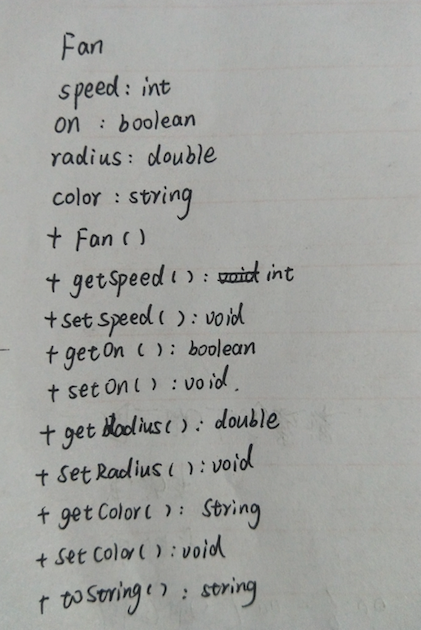 Fan
speed: int
on : boolean
radius: double
color : string
+ Fan()
+ getSpeed(): int
+ setSpeed(): void
+ getOn(): boolean
+ setOn() : void.
+ getRadius(): double
+ SetRadius(): void
+ getColor(): String
+ SetColor(): void
+ toString() : string